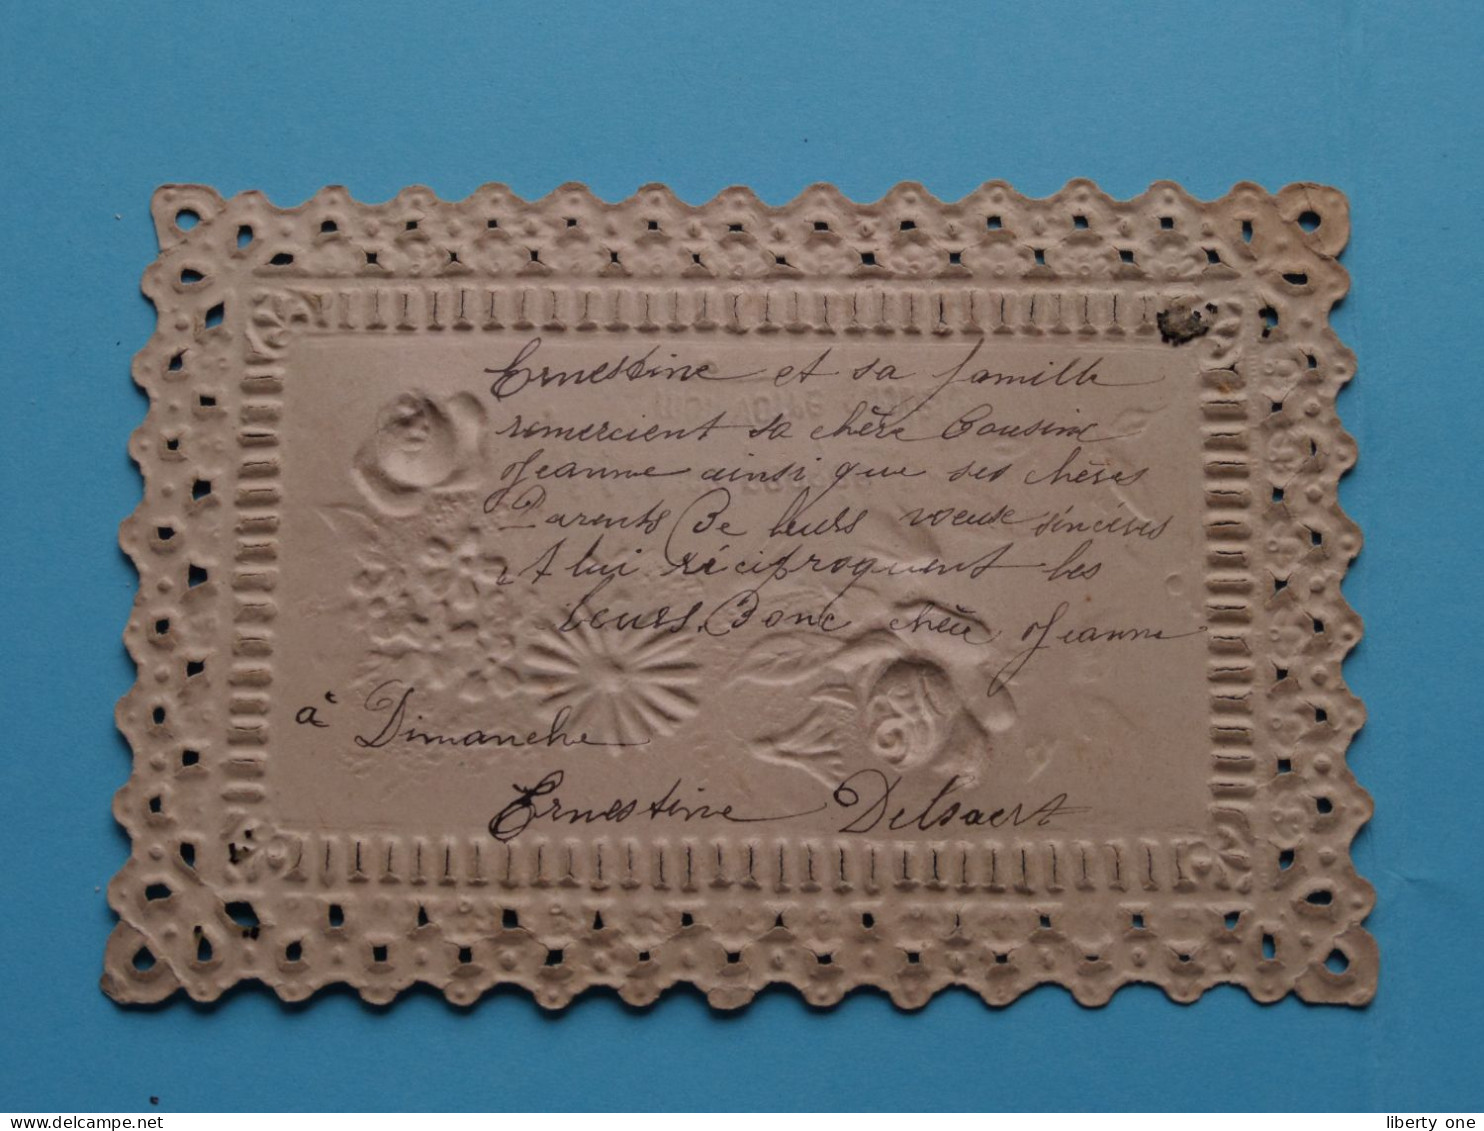 Ernestine et sa famille
remercient sa chère Cousine
Jeanne ainsi que ses chères
Parents De leurs voeux sincères
et lui réciproquent les
leurs. Donc chère Jeanne
à Dimanche
Ernestine Delsaert
delcampe.net
liberty one